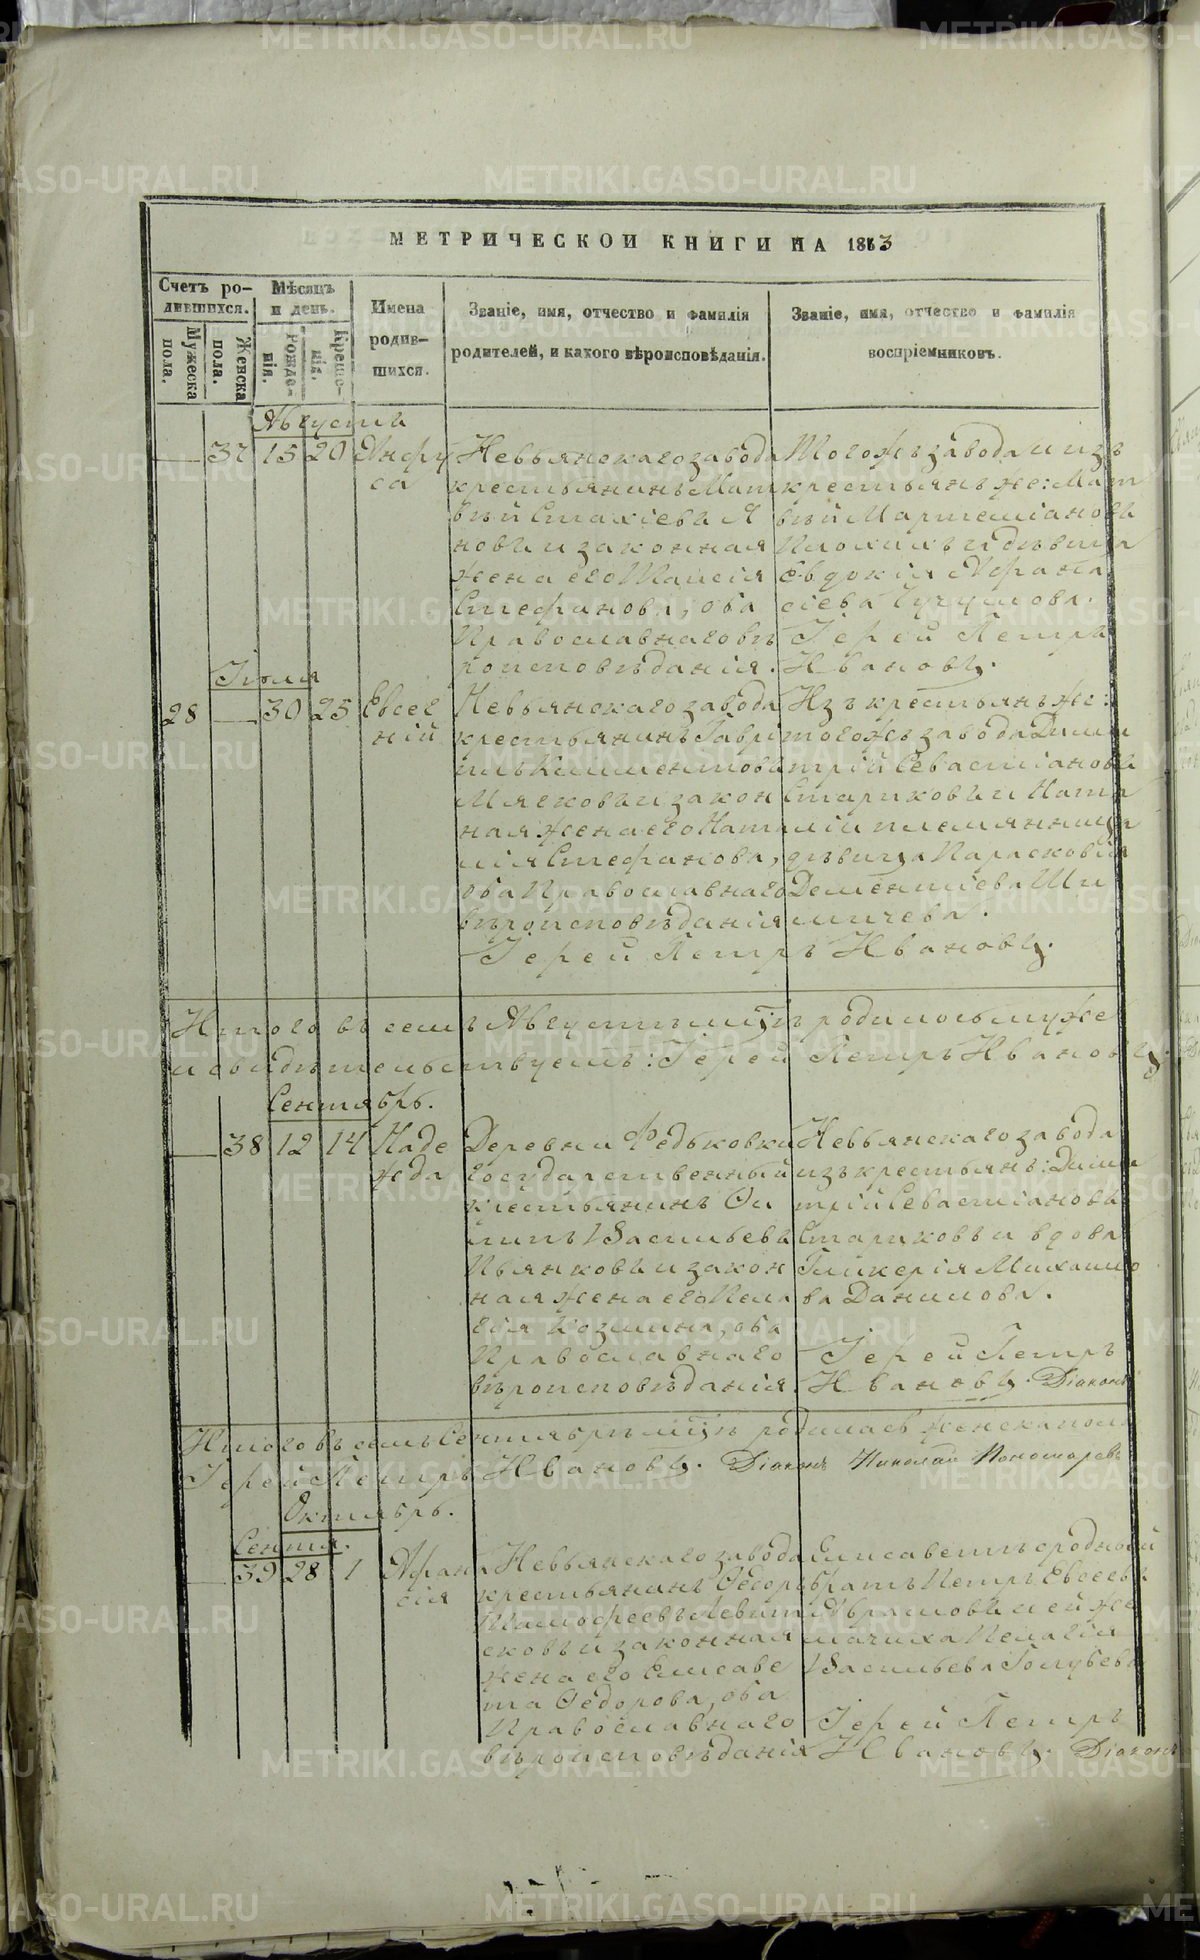 МЕТРИЧЕСКОЙ КНИГИ НА 1873
Счетъ ро-
дившихся.
Мѣсяцъ
и день.
Мужеска
пола.
Женска
пола.
Рожде-
нія.
Креще-
нія.
Имена
родив-
шихся.
Званіе, имя, отчество и фамилія
родителей, и какого вѣроисповѣданія.
Званіе, имя, отчество и фамилія
воспріемниковъ.
Августъ
37 15 20 Анфу
са
Невьянскаго завода
крестьянинъ Мат
вѣй Стахіевъ Я
новъ и законная
жена его Таисія
Стефанова, оба
Православнаго вѣ
роисповѣданія.
Тогожъ завода изъ
крестьянъ же: Мат
вѣй Мартеміановъ
и дѣвица
Евдокія Афана
сіева
Іерей Петръ
Ивановъ.
Іюля
28 30 25 Евсег
ній
Невьянскаго завода
крестьянинъ Гаврі
илъ Климентовъ
Мягковъ и закон
ная жена его Ната
лія Стефанова,
оба Православнаго
вѣроисповѣданія
Изъ крестьянъ же:
тогожъ завода Дими
трій Севастіановъ
Стариковъ и Ната
ліи племянница
дѣвица Парасковія
Дементіева Ши
мичева.
Іерей Петръ Ивановъ.
Итого въ семъ Августѣ мцѣ родилось муже
и свидѣтельствуемъ: Іерей Петръ Ивановъ.
Сентябрь.
38 12 14 Наде
жда
Деревни Федьковки
Государственный
крестьянинъ Фи
липъ Васильевъ
Пьянковъ и закон
ная жена его Пела
гея Козмина, оба
Православнаго
вѣроисповѣданія.
Невьянскаго завода
изъ крестьянъ: Дими
трій Севастіановъ
Стариковъ и вдова
Гликерія Михаило
ва Данилова.
Іерей Петръ
Ивановъ. Діаконъ
Итого въ семъ Сентябрѣ мцѣ родилась женска пола
Іерей Петръ Ивановъ. Діаконъ Николай Пономаревъ
Октябрь.
Сентя.
39 28 1 Афана
сія
Невьянскаго завода
крестьянинъ Ѳедоръ
Тимофеевъ Левит
сковъ и законная
жена его Елисаве
та Ѳедорова, оба
Православнаго
вѣроисповѣданія
Елисаветѣ сродный
братъ Петръ Евсеевъ
Абрамовъ и ей же
мачиха Пелагія
Васильева Голубева
Іерей Петръ
Ивановъ. Діаконъ